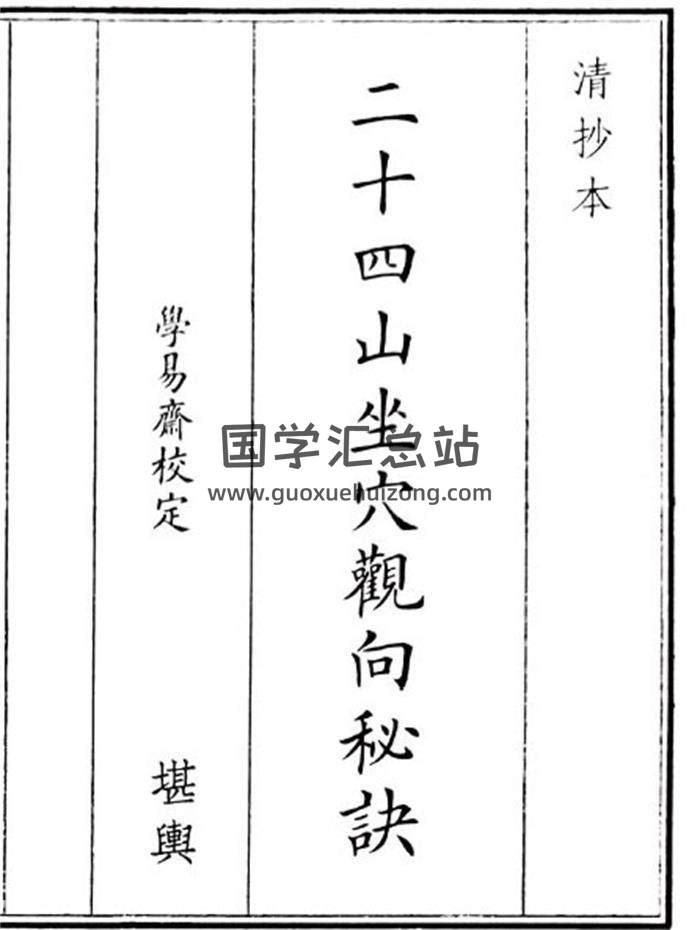 清抄本
二十四山坐穴觀向秘訣
學易齋校定
堪輿
国学汇总站
www.guoxuehuizong.com